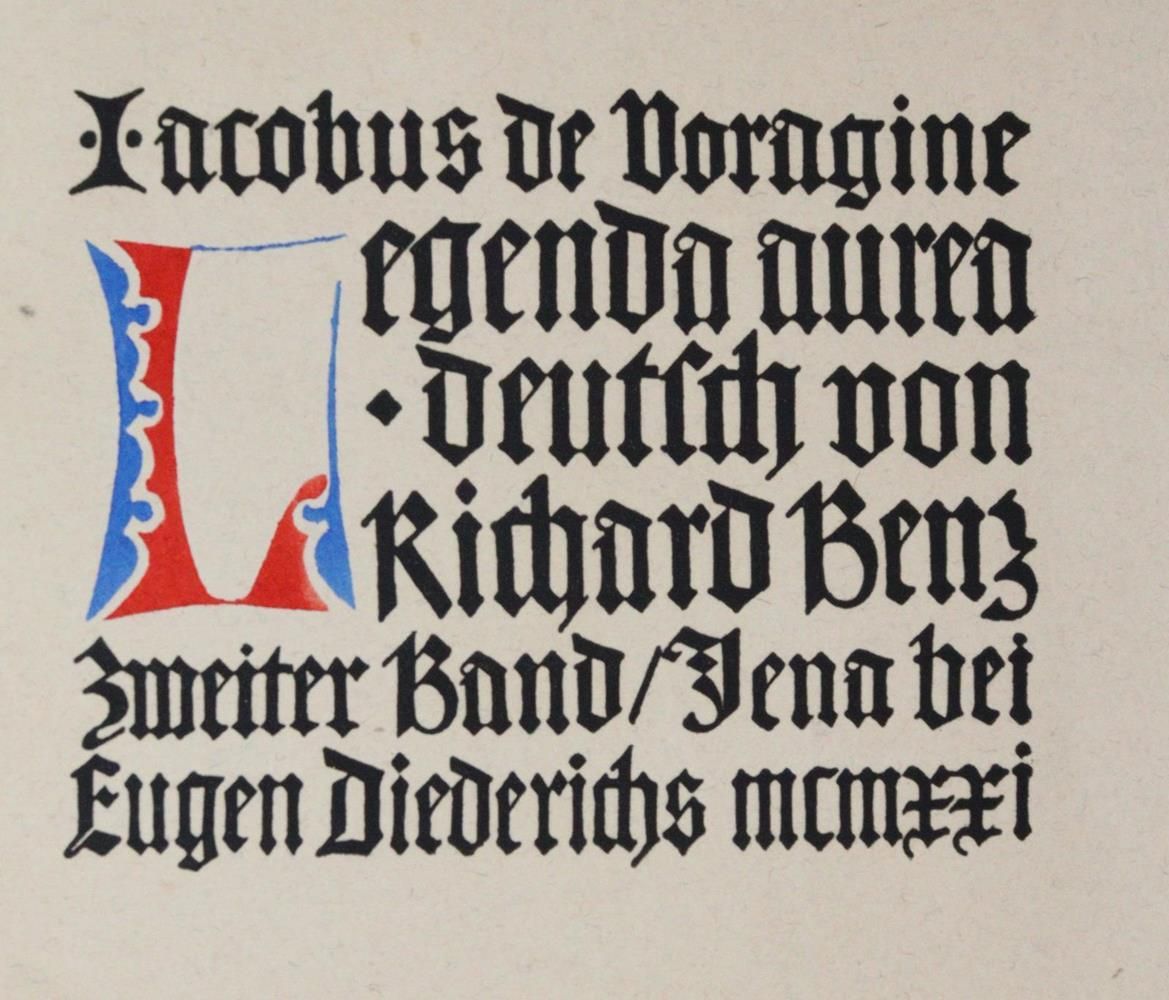 ·I·acobus de Voragine
Legenda aurea
· deutſch von
Richard Benz
Zweiter Band/Jena bei
Eugen Diederichs mcmxxi